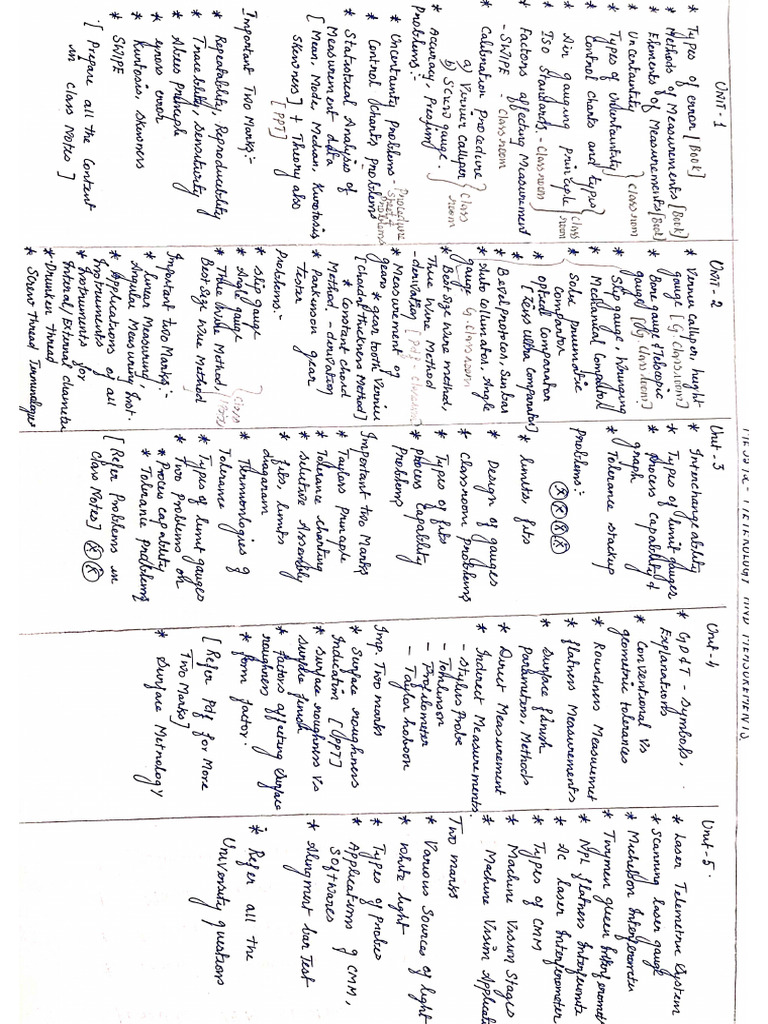 METROLOGY AND MEASUREMENTS
UNIT-1
* Types of error [Book]
* Methods of Measurements [Book]
* Elements of Measurements [Book]
* Uncertainity
* Types of Uncertainity } Classroom
* Control charts and types } Class room
* Air gauging principle
* Iso Standards - Classroom
* Factors affecting Measurement
- SWIPE - Classroom
* Calibration Procedure
a) Vernier calliper } Class
b) Screw gauge } room
* Accuracy, Precision
Problems:-
* Uncertainty Problems - Procedure
* Control Charts Problems
* Statistical Analysis of
Measurement data
[Mean, Mode, Median, Kurotosis
Skewness] + Theory also
[PPT]
Important Two Marks:-
* Repeatability, Reproducibility
* Traceability, Sensitivity
* Abbes Principle
* Gross error
* Kurtosis, Skewness
* SWIPE
[Prepare all the Content
in class Notes]
Unit-2
* Vernier Calliper, height
gauge [G. Class room]
* Bore gauge & Telescopic
gauge [G. Class room]
* Slip gauge, Wringing
* Mechanical Comparator
* Solex pneumatic
Comparator
* optical Comparator
[Zeiss Ultra Comparator]
* Bevel protactor, Sin bar
* Auto Collimator, Angle
gauge G. Class room
* Best Size Wire method,
Three Wire Method
- derivation [Pdf - Classroom]
* Measurement of
gears * gear tooth Vernier
[Chordal thickness Method]
* Constant chord
Method - derivation
* Parkinson gear
tester
Problems:-
* slip gauge
* Angle gauge
* Three Wire Method } Class
Best Size Wire Method } Notes
Important two Marks:-
* linear Measuring,
Angular Measuring Inst.
* Applications of all
Instruments
* Instruments for
Internal/External diameter
* Drunken thread
* Screw Thread Terminologies
Unit-3
* Interchangeability
* Types of limit gauges
* Process Capability &
graph
* Tolerance stackup
Problems:-
* limits, fits
* Design of gauges
* Classroom problems
* Types of fits
* process Capability
Problems
Important two Marks
* Taylors Principle
* Tolerance charting
* Selective Assembly
* fits, limits
diagram
* Thermionlogies of
Tolerance
* Types of limit gauges
* Two Problems on
* Process capability
* Tolerance problems
[Refer Problems in
Class Notes]
Unit-4
* GD&T - Symbols,
Explanations
* Conventional Vs
geometric tolerances
* Roundness Measurmet
* flatness Measurements
* Surface finish
Parameters, Methods
* Direct Measurement
* Indirect Measurements
- Stylus Probe
- Tomlinson
- Profilometer
- Taylor hobson
Imp. Two marks
* Surface roughness
Indication [PPT]
* Surface roughness Vs
Surface finish
* factors affecting Surface
roughness
* form factor.
[Refer Pdf for More
Two Marks]
* Surface Metrology
Unit-5
* Laser Telemetric System
* Scanning laser gauge
* Michelson Interferometer
* Twymen green Interferomet
* Npl flatness Interferomete
* Ac laser Interferometer
* Types of CMM
* Machine Vision Stages
* Machine Vision Applicati
Two marks
* Various Sources of light
* White light
* Types of Probes
* Applications of CMM,
Softwares
* Alingment bar Test
* Refer all the
University questions